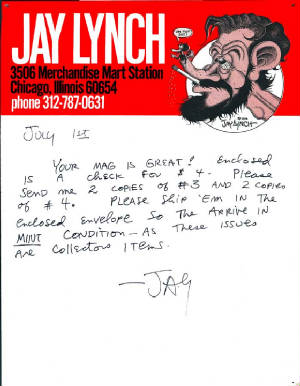 JAY LYNCH
3506 Merchandise Mart Station
Chicago, Illinois 60654
phone 312-787-0631
JAY LYNCH
July 1st
YOUR MAG IS GREAT! Enclosed
IS A check FOR $4. Please
Send me 2 copies of #3 AND 2 copies
of #4. PLEASE Ship 'Em IN The
Enclosed Envelope So The ARRIVE IN
MINT CONDITION — AS These issues
ARE Collectors ITEMS.
—JAY